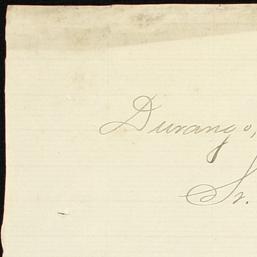 Durango,
Sr.